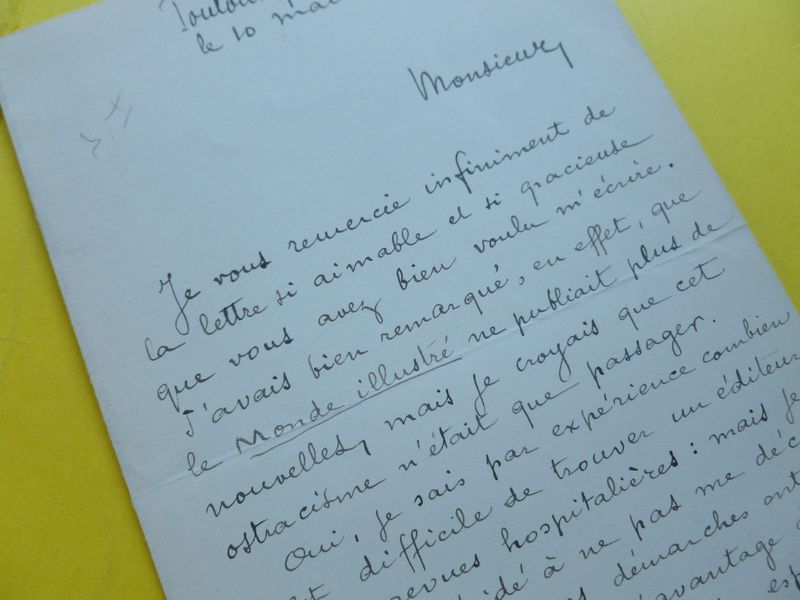 le 10
Monsieur,
Je vous remercie infiniment de
la lettre si aimable et si gracieuse
que vous avez bien voulu m'écrire.
J'avais bien remarqué, en effet, que
le Monde illustré ne publiait plus de
nouvelles, mais je croyais que cet
ostracisme n'était que passager.
Oui, je sais par expérience combien
difficile de trouver un éditeur
revues hospitalières : mais je
à ne pas me
démarches ont